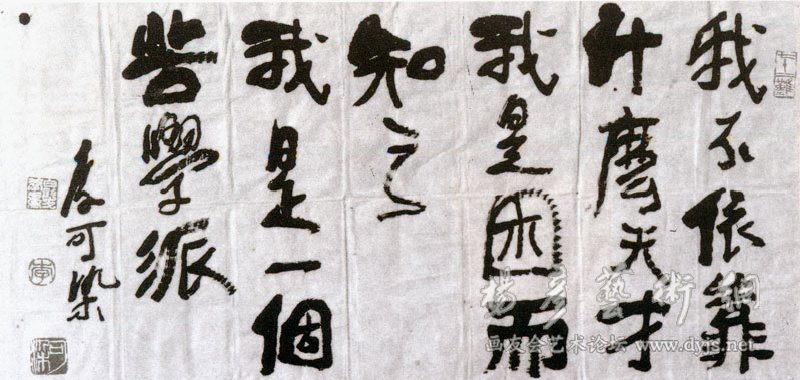 我不依靠
什麼天才
我是困而
知之
我是一個
苦學派
李可染
杨彦藝術網
画友会艺术论坛 www.dyjs.net